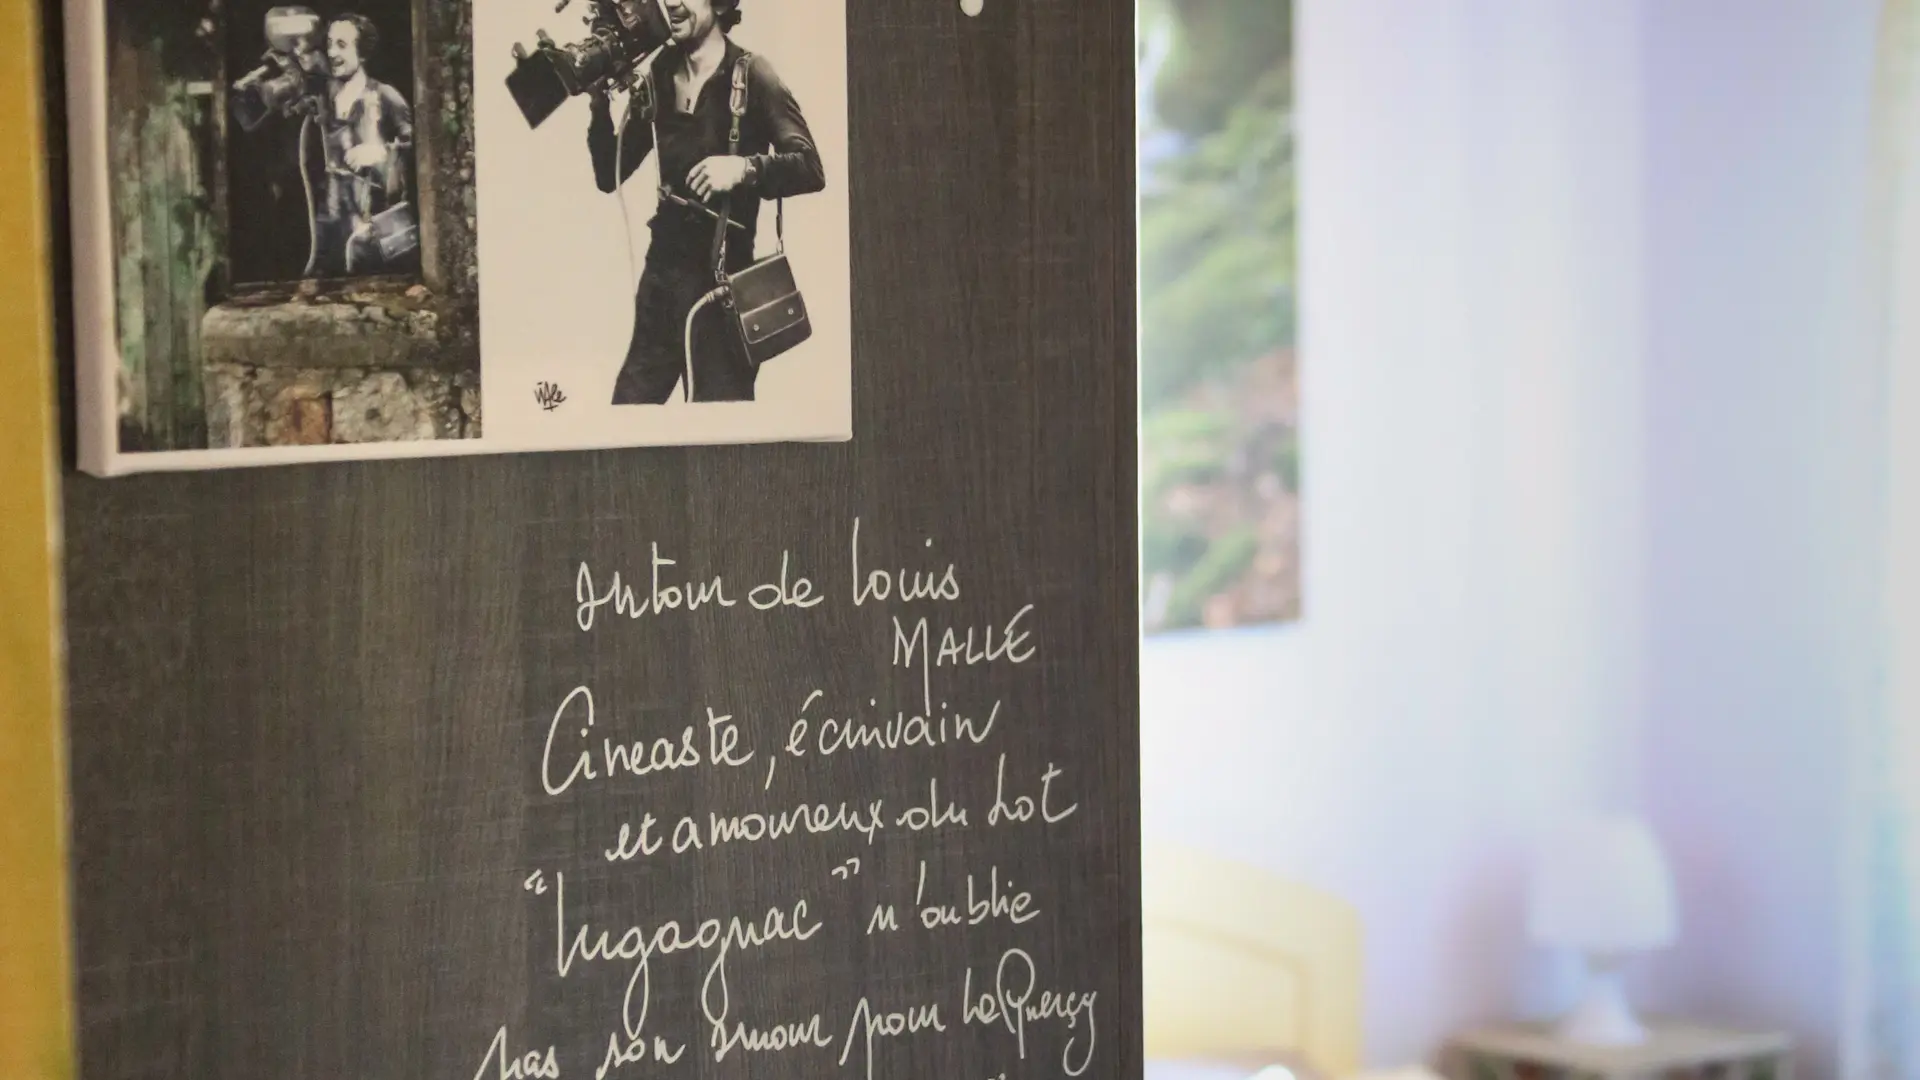 Autour de Louis
MALLE
Cineaste, écrivain
et amoureux du Lot
"Lugagnac" n'oublie
pas son amour pour Le Quercy